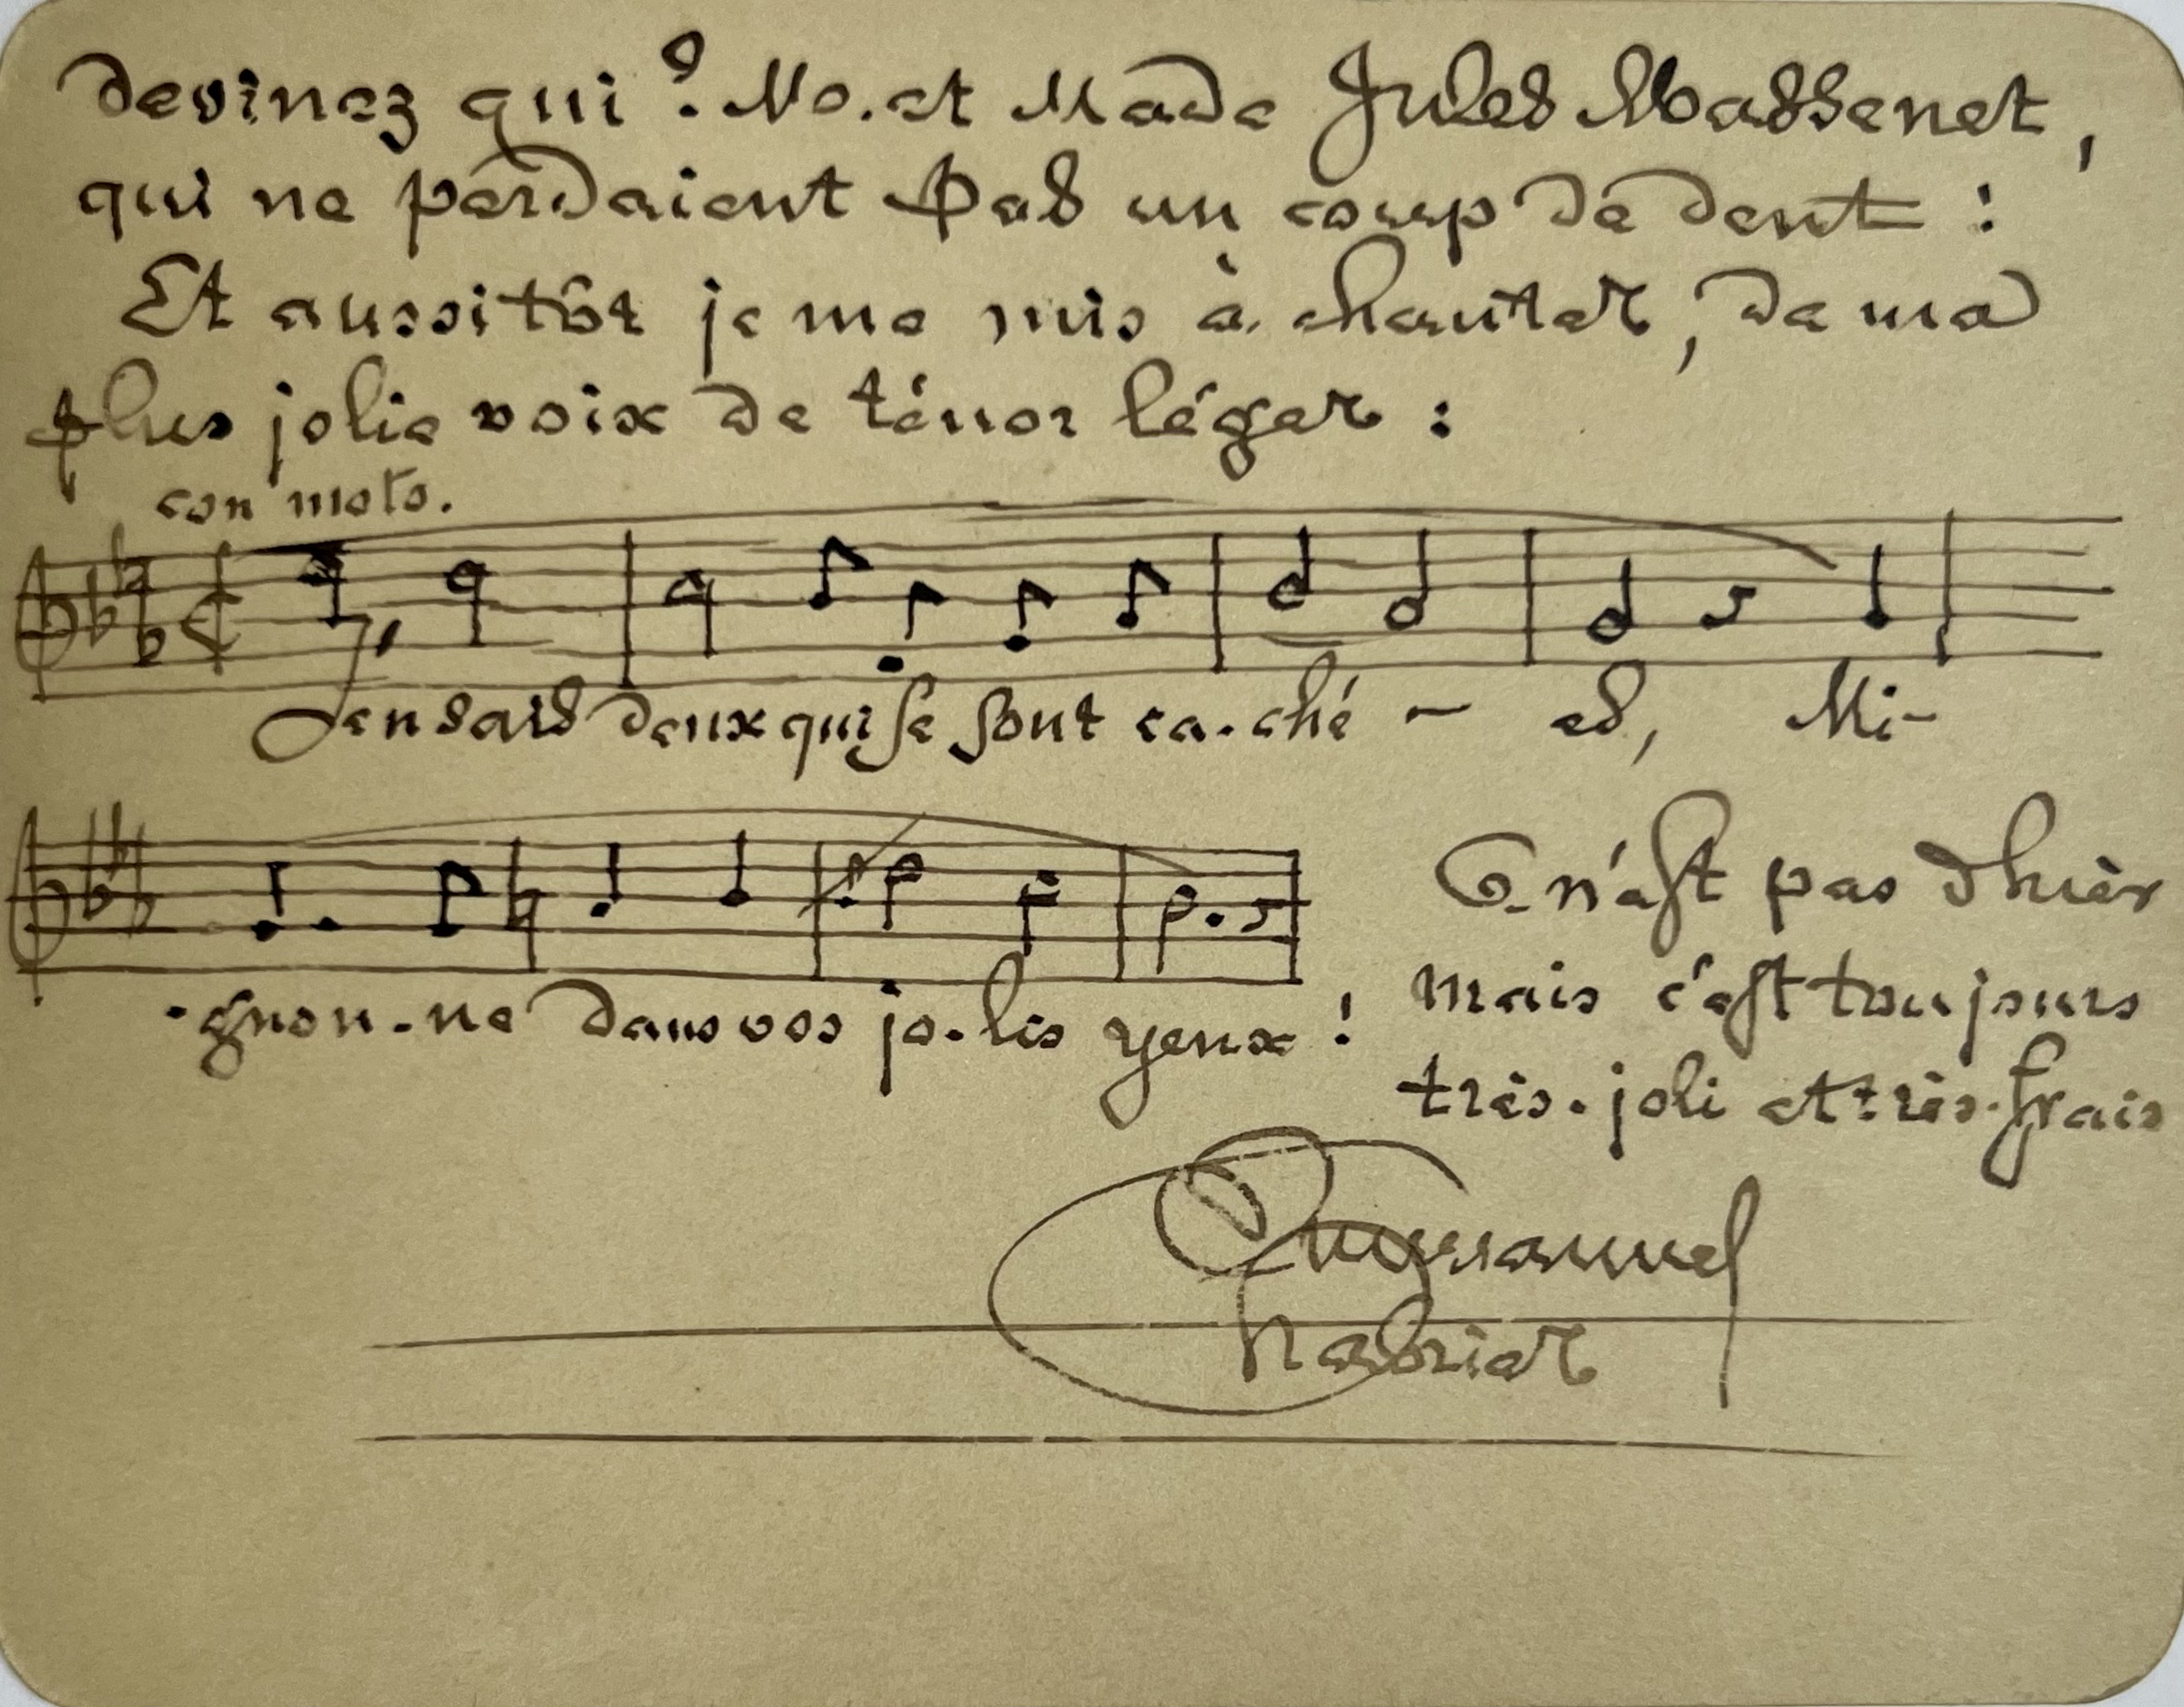 devinez qui? Mo. et Made Jules Massenet,
qui ne perdaient pas un coup de dent!
Et aussitôt je me mis à chanter, de ma
plus jolie voix de ténor léger:
con moto.
J'en sais deux qui se sont ca-ché - es, Mi-
-gnon-ne dans vos jo-lis yeux!
Ce n'est pas d'hier
mais c'est toujours
très-joli et très-frais
Emmanuel
Chabrier